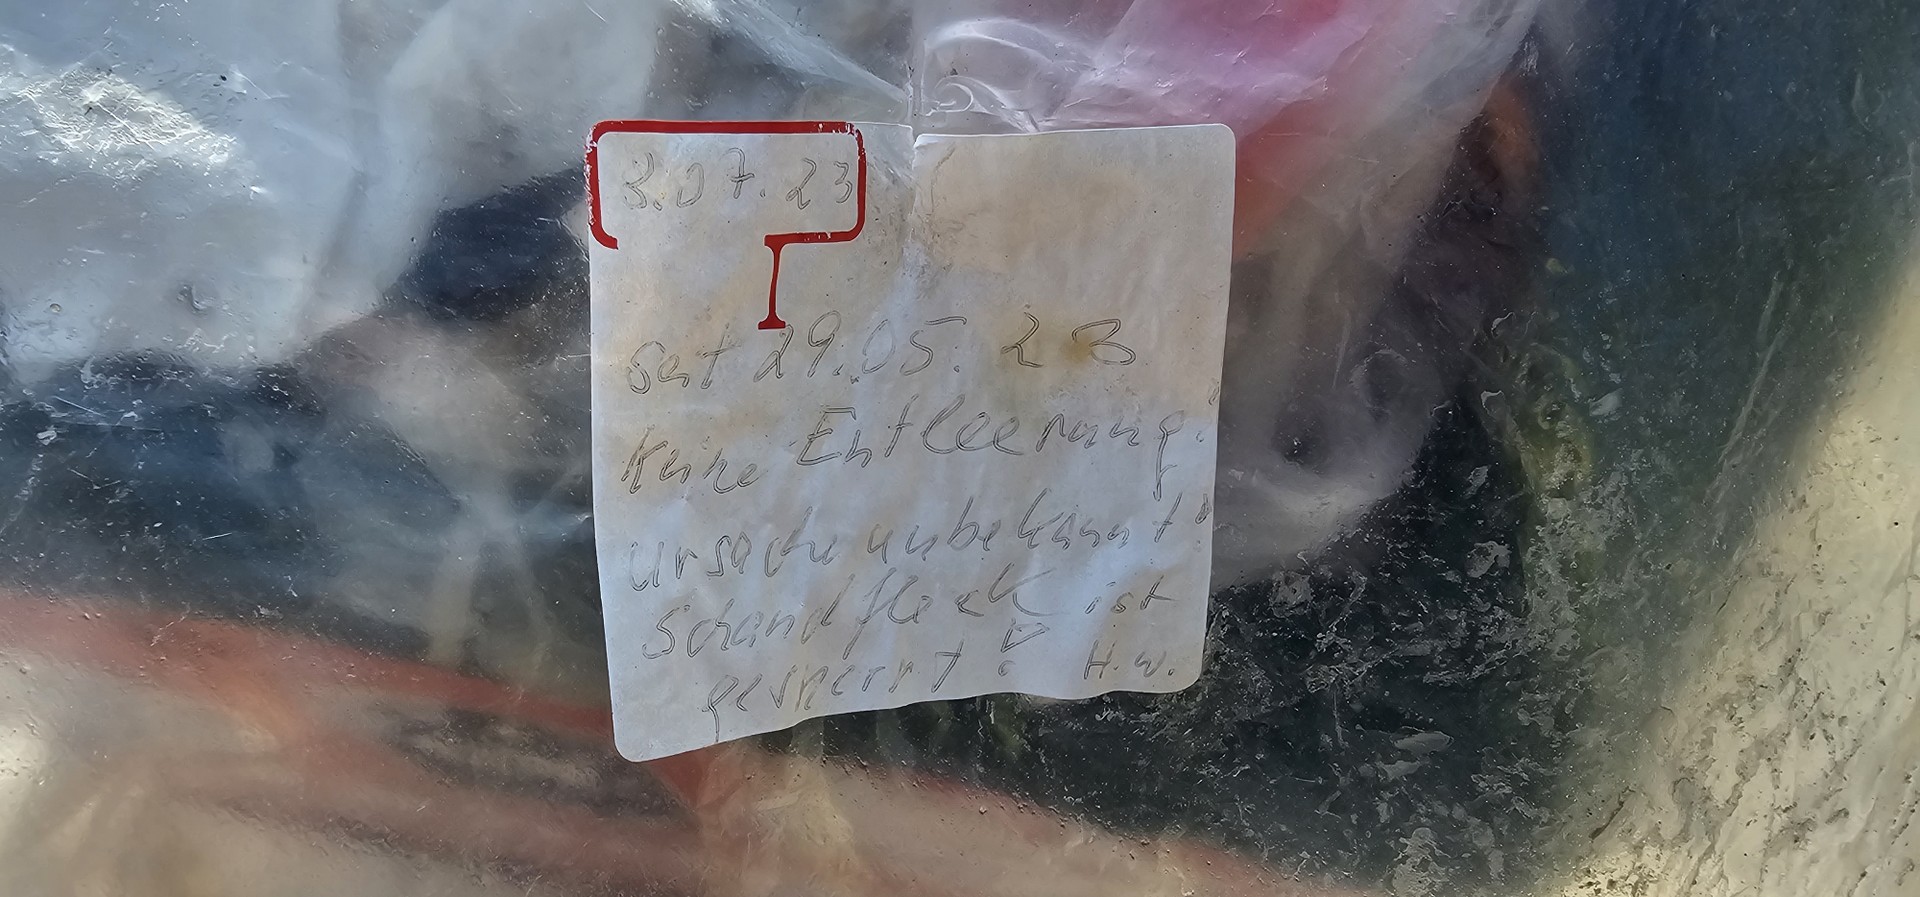 3.07.23
seit 29.05.23
keine Entleerung!
Ursache unbekannt!
Schandfleck ist
gesperrt! H.W.